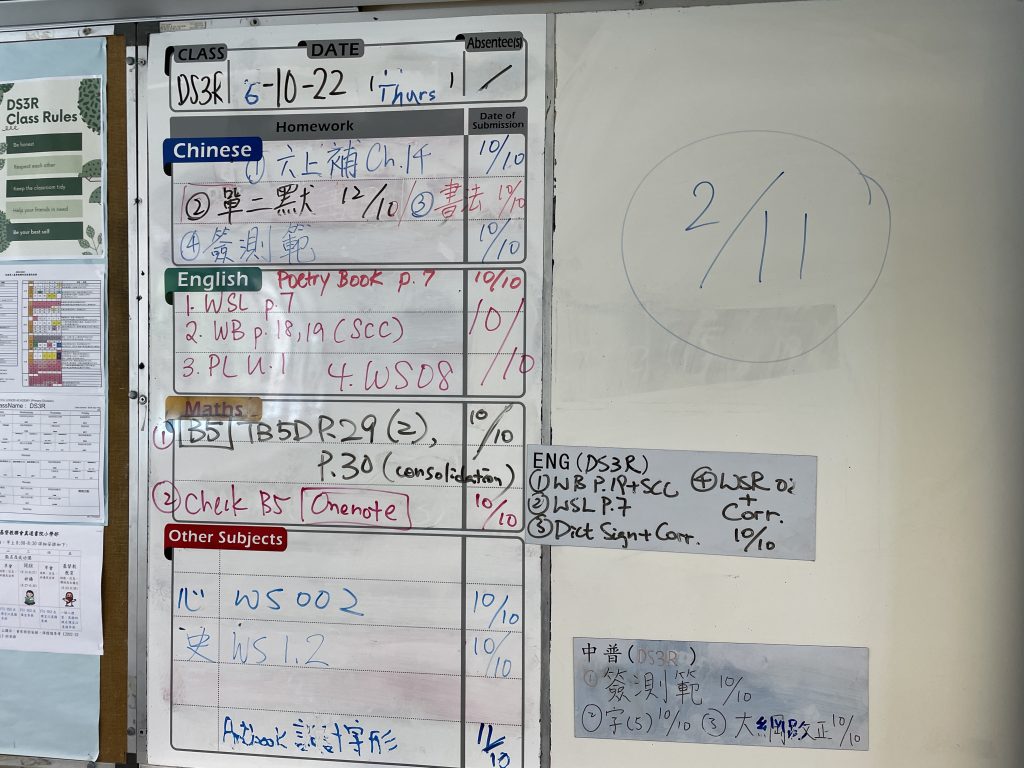 DS3R
Class Rules
Be honest
Respect each other
Keep the classroom tidy
Help your friends in need
Be your best self
ClassName : DS3R
CLASS DATE Absentee(s)
DS3R 6-10-22 (Thurs) /
Homework Date of Submission
Chinese ① 六上補 Ch.14 10/10
② 單二默 12/10 ③ 書法 10/10
④ 簽測範 10/10
English Poetry Book p.7 10/10
1. WSL p.7
2. WB p.18,19 (SCC) 10/10
3. PL U.1 4. WS08
Maths
① B5 TB5D P.29 (2), 10/10
P.30 (consolidation)
② Check B5 Onenote 10/10
Other Subjects
心 WS 002 10/10
史 WS 1.2 10/10
Artbook 設計字形 11/10
2/11
ENG (DS3R)
① WB P.19+SCC ④ WSR
② WSL P.7 + Corr.
③ Dict Sign + Corr. 10/10
中普 (DS3R)
① 簽測範 10/10
② 字(5) 10/10 ③ 大綱改正 10/10